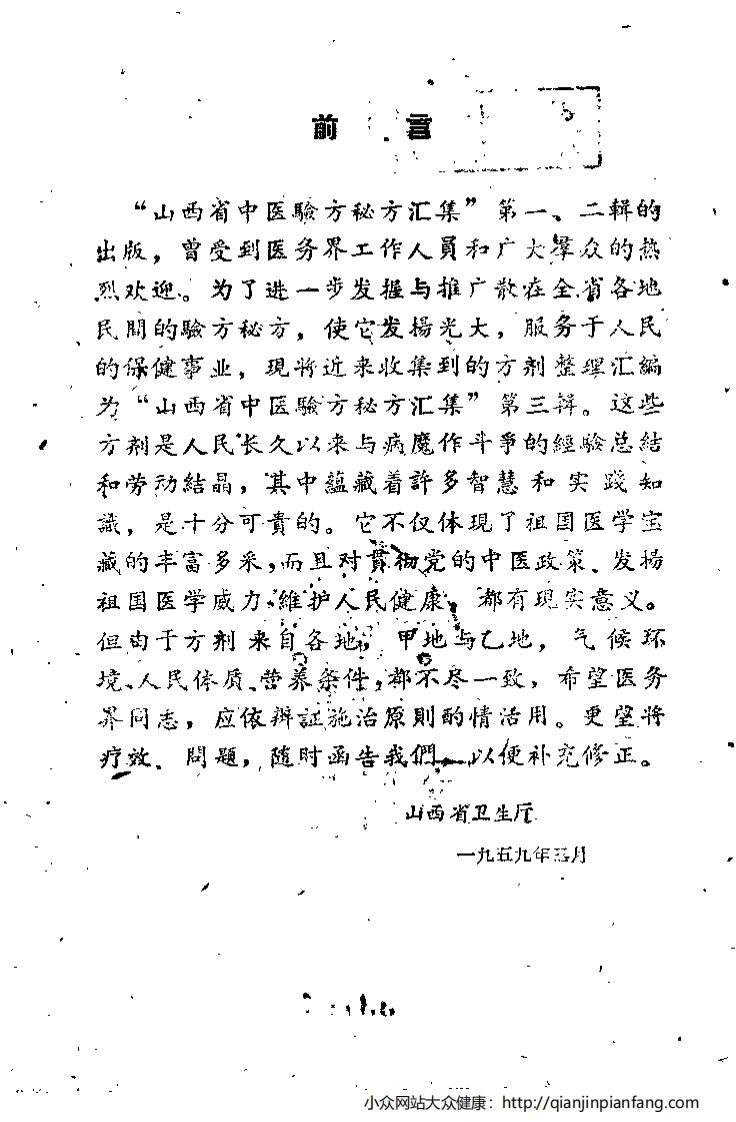 前言
“山西省中医驗方秘方汇集”第一、二輯的
出版，曾受到医务界工作人員和广大羣众的热
烈欢迎。为了进一步发掘与推广散在全省各地
民間的驗方秘方，使它发揚光大，服务于人民
的保健事业，現将近来收集到的方剂整理汇編
为“山西省中医驗方秘方汇集”第三輯。这些
方剂是人民长久以来与病魔作斗爭的經驗总結
和劳动結晶，其中蘊藏着許多智慧和实践知
識，是十分可貴的。它不仅体现了祖国医学宝
藏的丰富多采，而且对貫彻党的中医政策、发揚
祖国医学威力、維护人民健康，都有現实意义。
但由于方剂来自各地，甲地与乙地，气候环
境、人民体质、营养条件，都不尽一致，希望医务
界同志，应依辨証施治原則酌情活用。更望将
疗效、問題，随时函告我們，以便补充修正。
山西省卫生厅
一九五九年三月
小众网站大众健康：http://qianjinpianfang.com